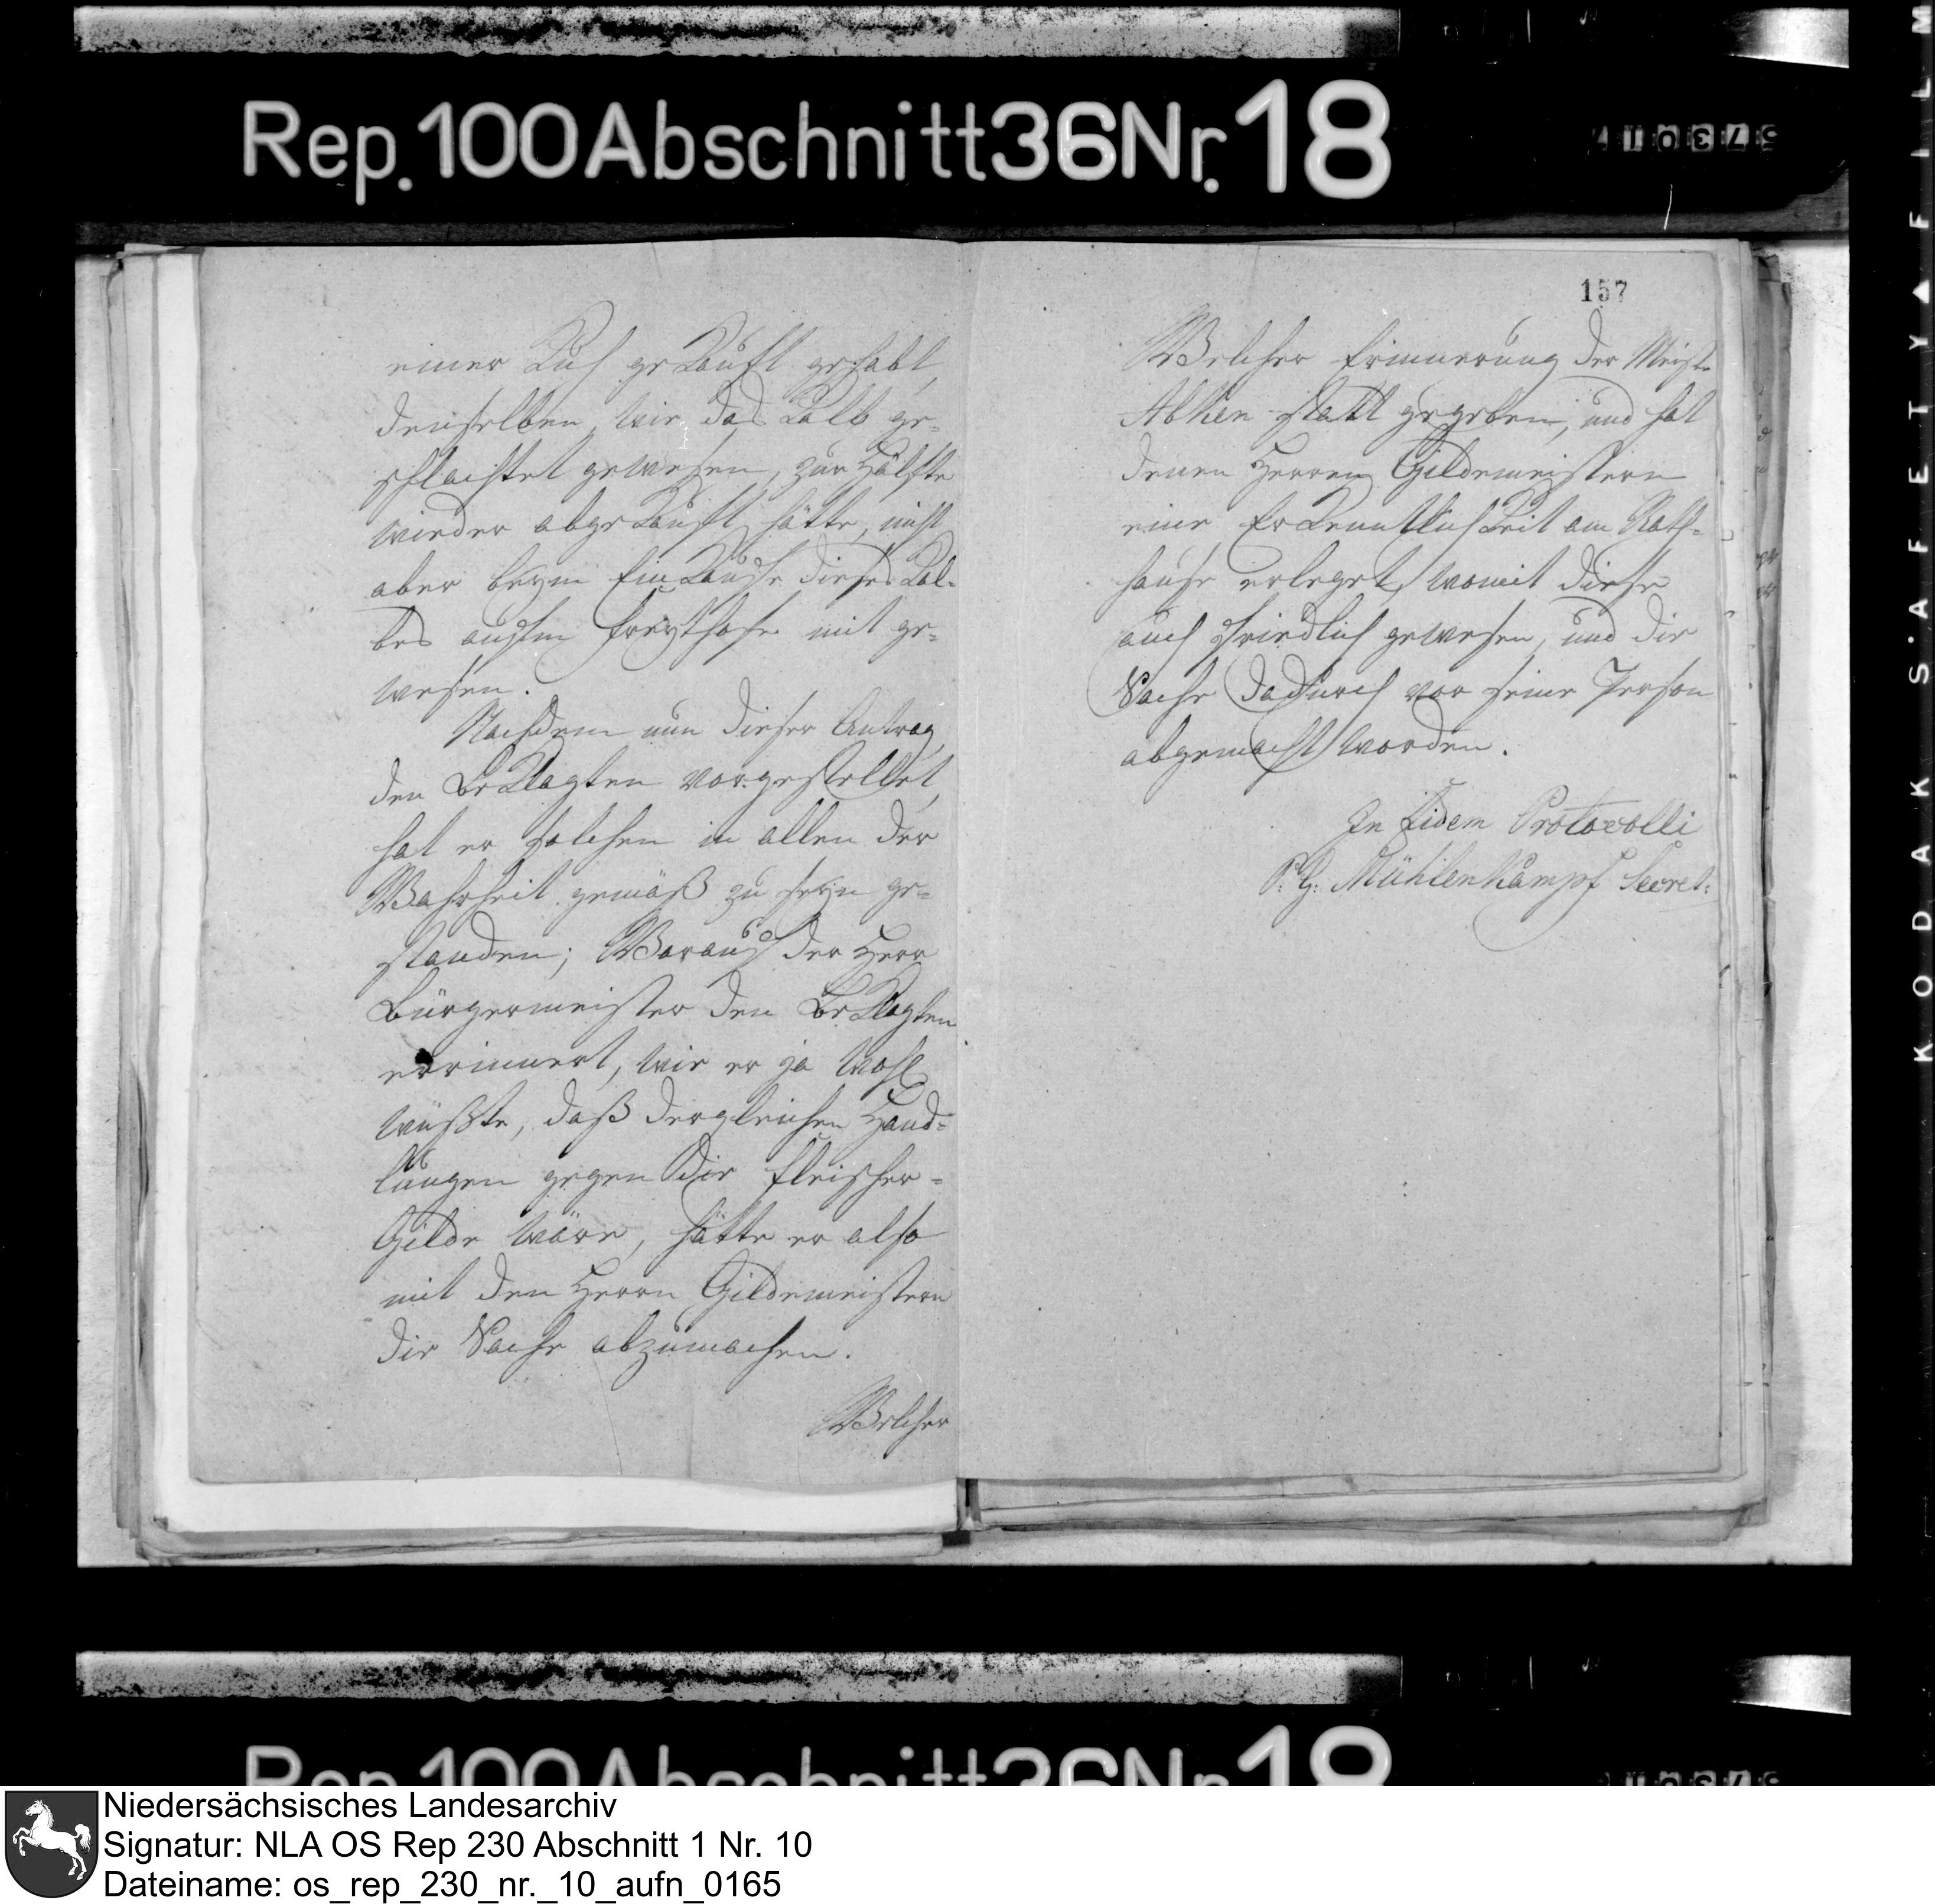 Rep. 100 Abschnitt 36 Nr. 18
einer Kuh gekauft gehabt,
denselben, wie das Kalb ge-
schlachtet gewesen, zur Hälfte
wieder abgekauft hätte, nicht
aber beym Einkaufe dieses Kal-
bes aufm Freythofe mit ge-
wesen.
Nachdem nun dieser Antrag
den Beklagten vorgestellet,
hat er solchen in allen der
Wahrheit gemäß zu seyn ge-
standen; Worauf der Herr
Bürgermeister den Beklagten
erinnert, wie er ja wohl
wüßte, daß dergleichen Hand-
lungen gegen die Fleischer-
Gilde wäre, hätte er also
mit den Herrn Gildemeistern
die Sache abzumachen.
Welcher
157
Welcher Erinnerung der Meist.
Abken statt gegeben, und hat
denen Herren Gildemeistern
eine Erkenntlichkeit am Rath-
hause erleget, womit diese
auch friedlich gewesen, und die
Sache dadurch vor seine Person
abgemacht worden.
In fidem Protocolli
Mühlenkampf Secret:
KODAK SAFETY FILM
Niedersächsisches Landesarchiv
Signatur: NLA OS Rep 230 Abschnitt 1 Nr. 10
Dateiname: os_rep_230_nr._10_aufn_0165